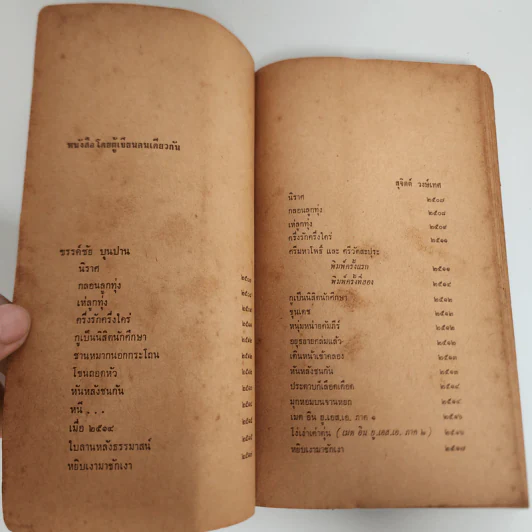 หนังสือโดยผู้เขียนคนเดียวกัน
ขรรค์ชัย บุนปาน
นิราศ
กลอนลูกทุ่ง
เห่ลูกทุ่ง
ครึ่งรักครึ่งใคร่
กูเป็นนิสิตนักศึกษา
ชานหมากนอกกระโถน
โขนถอดหัว
หันหลังชนกัน
หนี . . .
เมื่อ ๒๕๑๔
ใบลานหลังธรรมาสน์
หยิบเงามาชักเงา
สุจิตต์ วงษ์เทศ
นิราศ ๒๕๐๗
กลอนลูกทุ่ง ๒๕๐๘
เห่ลูกทุ่ง ๒๕๐๙
ครึ่งรักครึ่งใคร่ ๒๕๑๑
ศรีมหาโพธิ์ และ ศรีวัตสะปุระ
พิมพ์ครั้งแรก ๒๕๑๑
พิมพ์ครั้งที่สอง ๒๕๑๔
กูเป็นนิสิตนักศึกษา ๒๕๑๒
ขุนเดช ๒๕๑๒
หนุ่มหน่ายคัมภีร์ ๒๕๑๒
อยุธยายศล่มแล้ว ๒๕๑๒
เดินหน้าเข้าคลอง ๒๕๑๓
หันหลังชนกัน ๒๕๑๔
ประดาบก็เลือดเดือด ๒๕๑๔
มุกหอมบนจานหยก ๒๕๑๔
เมด อิน ยู.เอส.เอ. ภาค ๑ ๒๕๑๖
โง่เง่าเต่าตุ่น ( เมด อิน ยู.เอส.เอ. ภาค ๒ ) ๒๕๑๖
หยิบเงามาชักเงา ๒๕๑๗